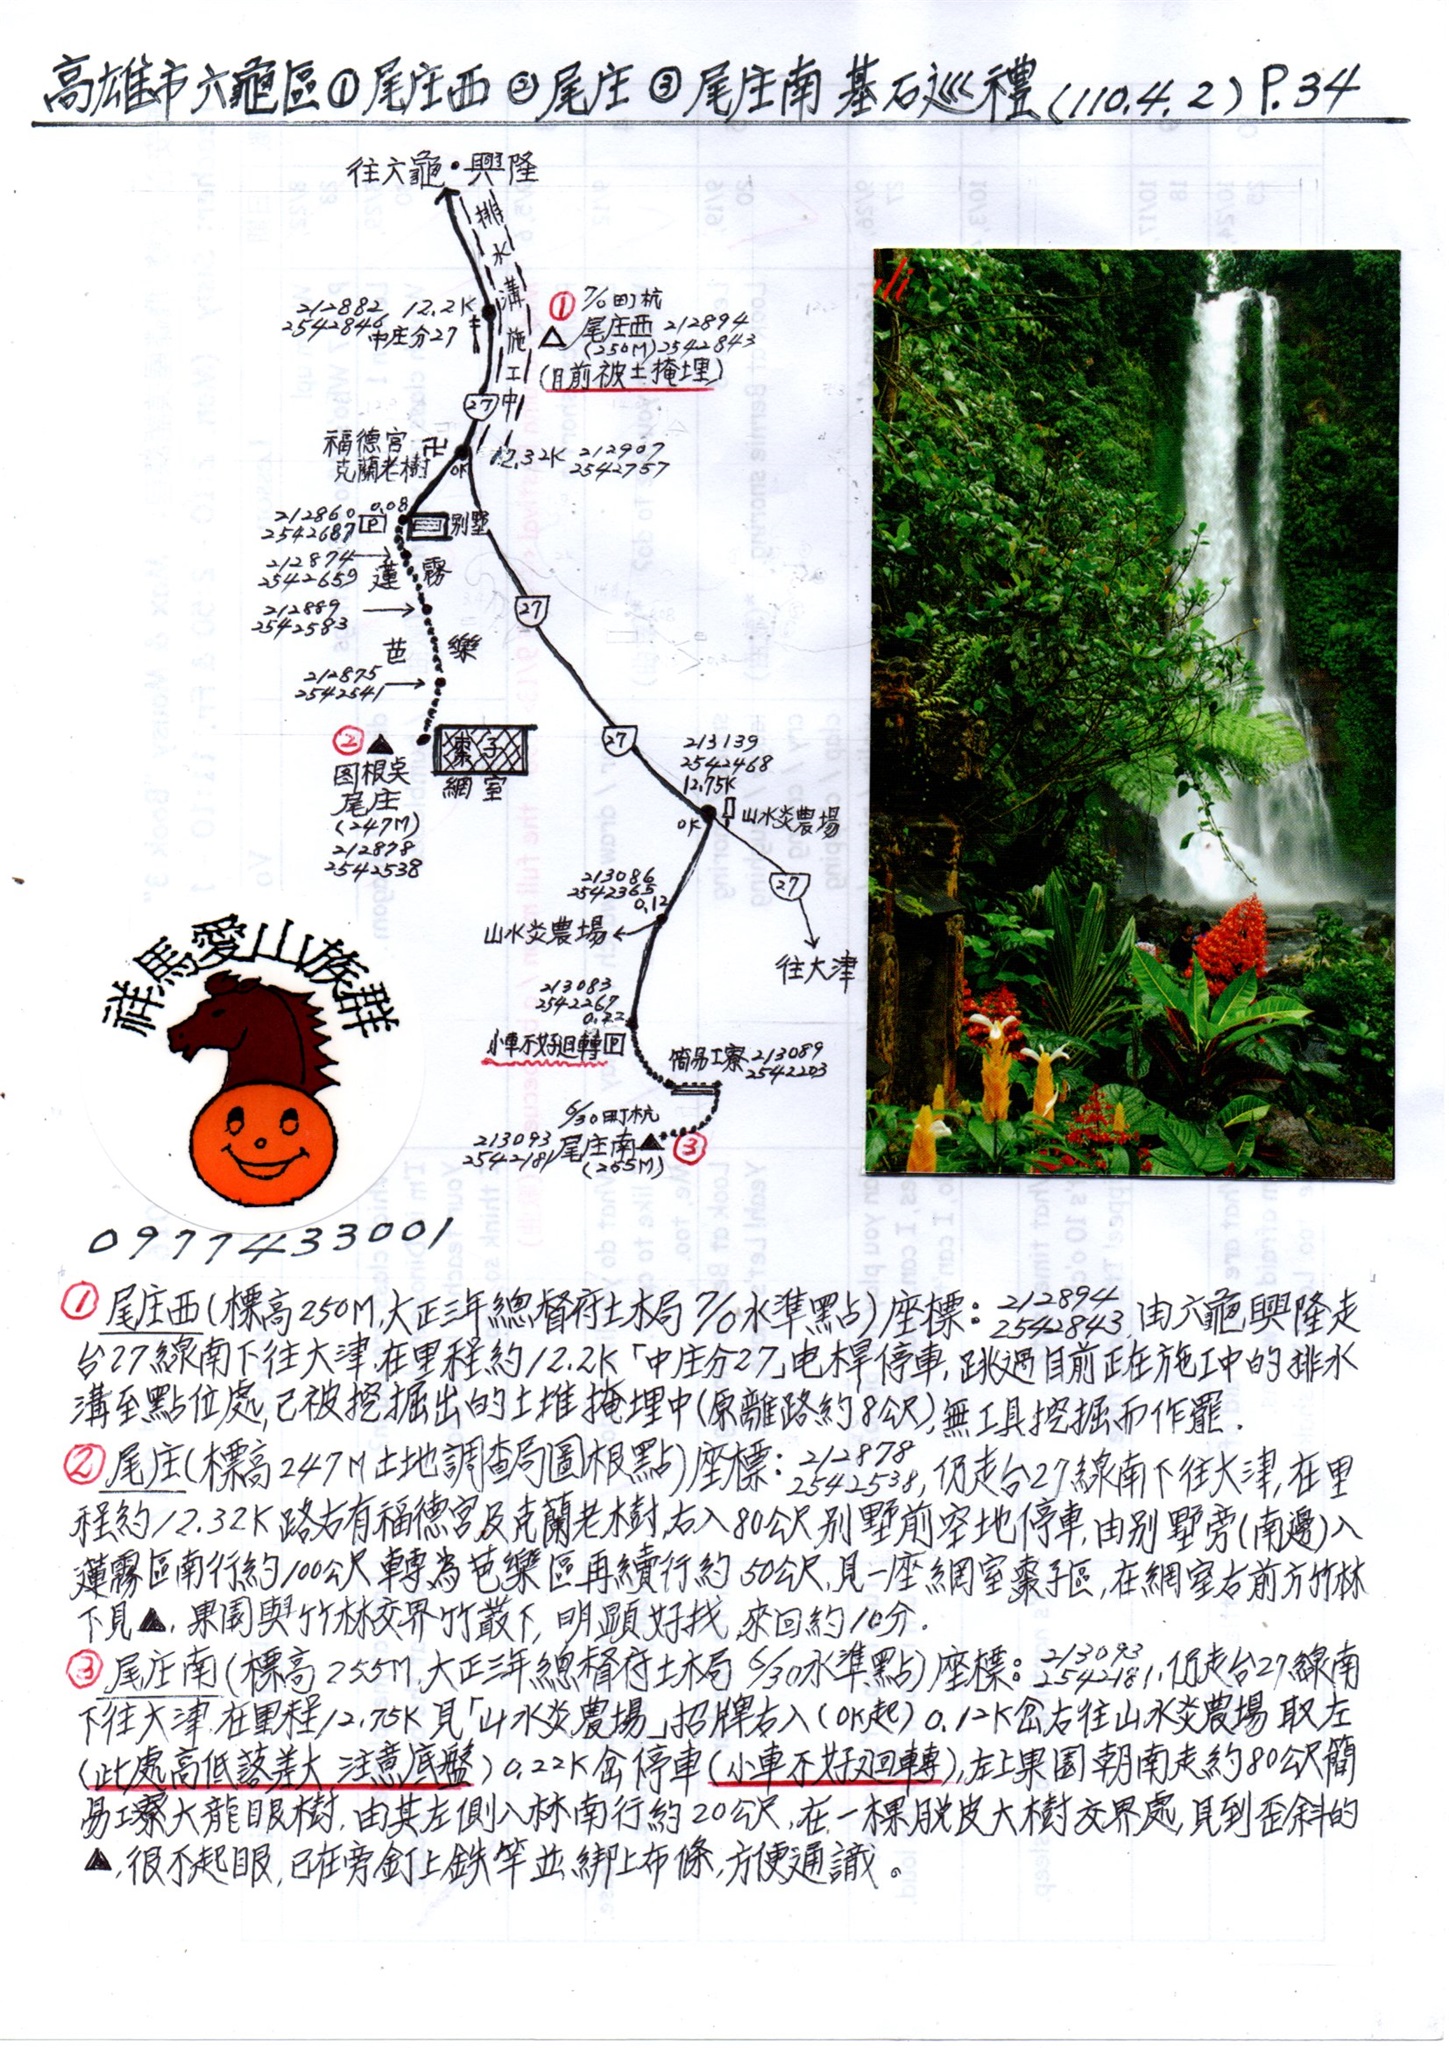 高雄市六龜區①尾庄西②尾庄③尾庄南基石巡禮(110.4.2) P.34
往六龜・興隆
排水溝施工中
212882
2542846
12.2K
中庄分27
① 7/0町杭
尾庄西 212894
(250M) 2542843
(目前被土掩埋)
27
福德宮 卍
克蘭老樹
0K
12.32K 212907
2542757
212860 0.08
2542687 P
別墅
212874
2542659
蓮霧
212889
2542583
27
芭樂
212875
2542541
②
图根點
尾庄
(247M)
212878
2542538
棗子
網室
27
213139
2542468
12.75K
山水炎農場
0K
27
213086
2542365
0.12
山水炎農場
往大津
213083
2542267
0.22
小車不好迴轉 P
簡易工寮 213089
2542203
6/30町杭
213093
2542181
尾庄南
(255M)
③
祥馬愛山族群
0977433001
① 尾庄西(標高250M,大正三年總督府土木局7/0水準點)座標:212894 2542843,由六龜興隆走
台27線南下往大津,在里程約12.2K「中庄分27」电桿停車,跳過目前正在施工中的排水
溝至點位處,已被挖掘出的土堆掩埋中(原離路約8公尺),無工具挖掘而作罷.
② 尾庄(標高247M土地調查局圖根點)座標:212878 2542538,仍走台27線南下往大津,在里
程約12.32K路右有福德宮及克蘭老樹,右入80公尺別墅前空地停車,由別墅旁(南邊)入
蓮霧區南行約100公尺轉為芭樂區再續行約50公尺,見一座網室棗子區,在網室右前方竹林
下見▲,果園與竹林交界竹叢下,明顯好找,來回約10分.
③ 尾庄南(標高255M,大正三年總督府土木局6/30水準點)座標:213093 2542181,仍走台27線南
下往大津,在里程12.75K見「山水炎農場」招牌右入(0K起)0.12K岔右往山水炎農場取左
(此處高低落差大,注意底盤)0.22K岔停車(小車不好迴轉),左上果園朝南走約80公尺簡
易工寮大龍眼樹,由其左側入林南行約20公尺,在一棵脫皮大樹交界處,見到歪斜的
▲,很不起眼,已在旁釘上鉄竿並綁上布條,方便通識。